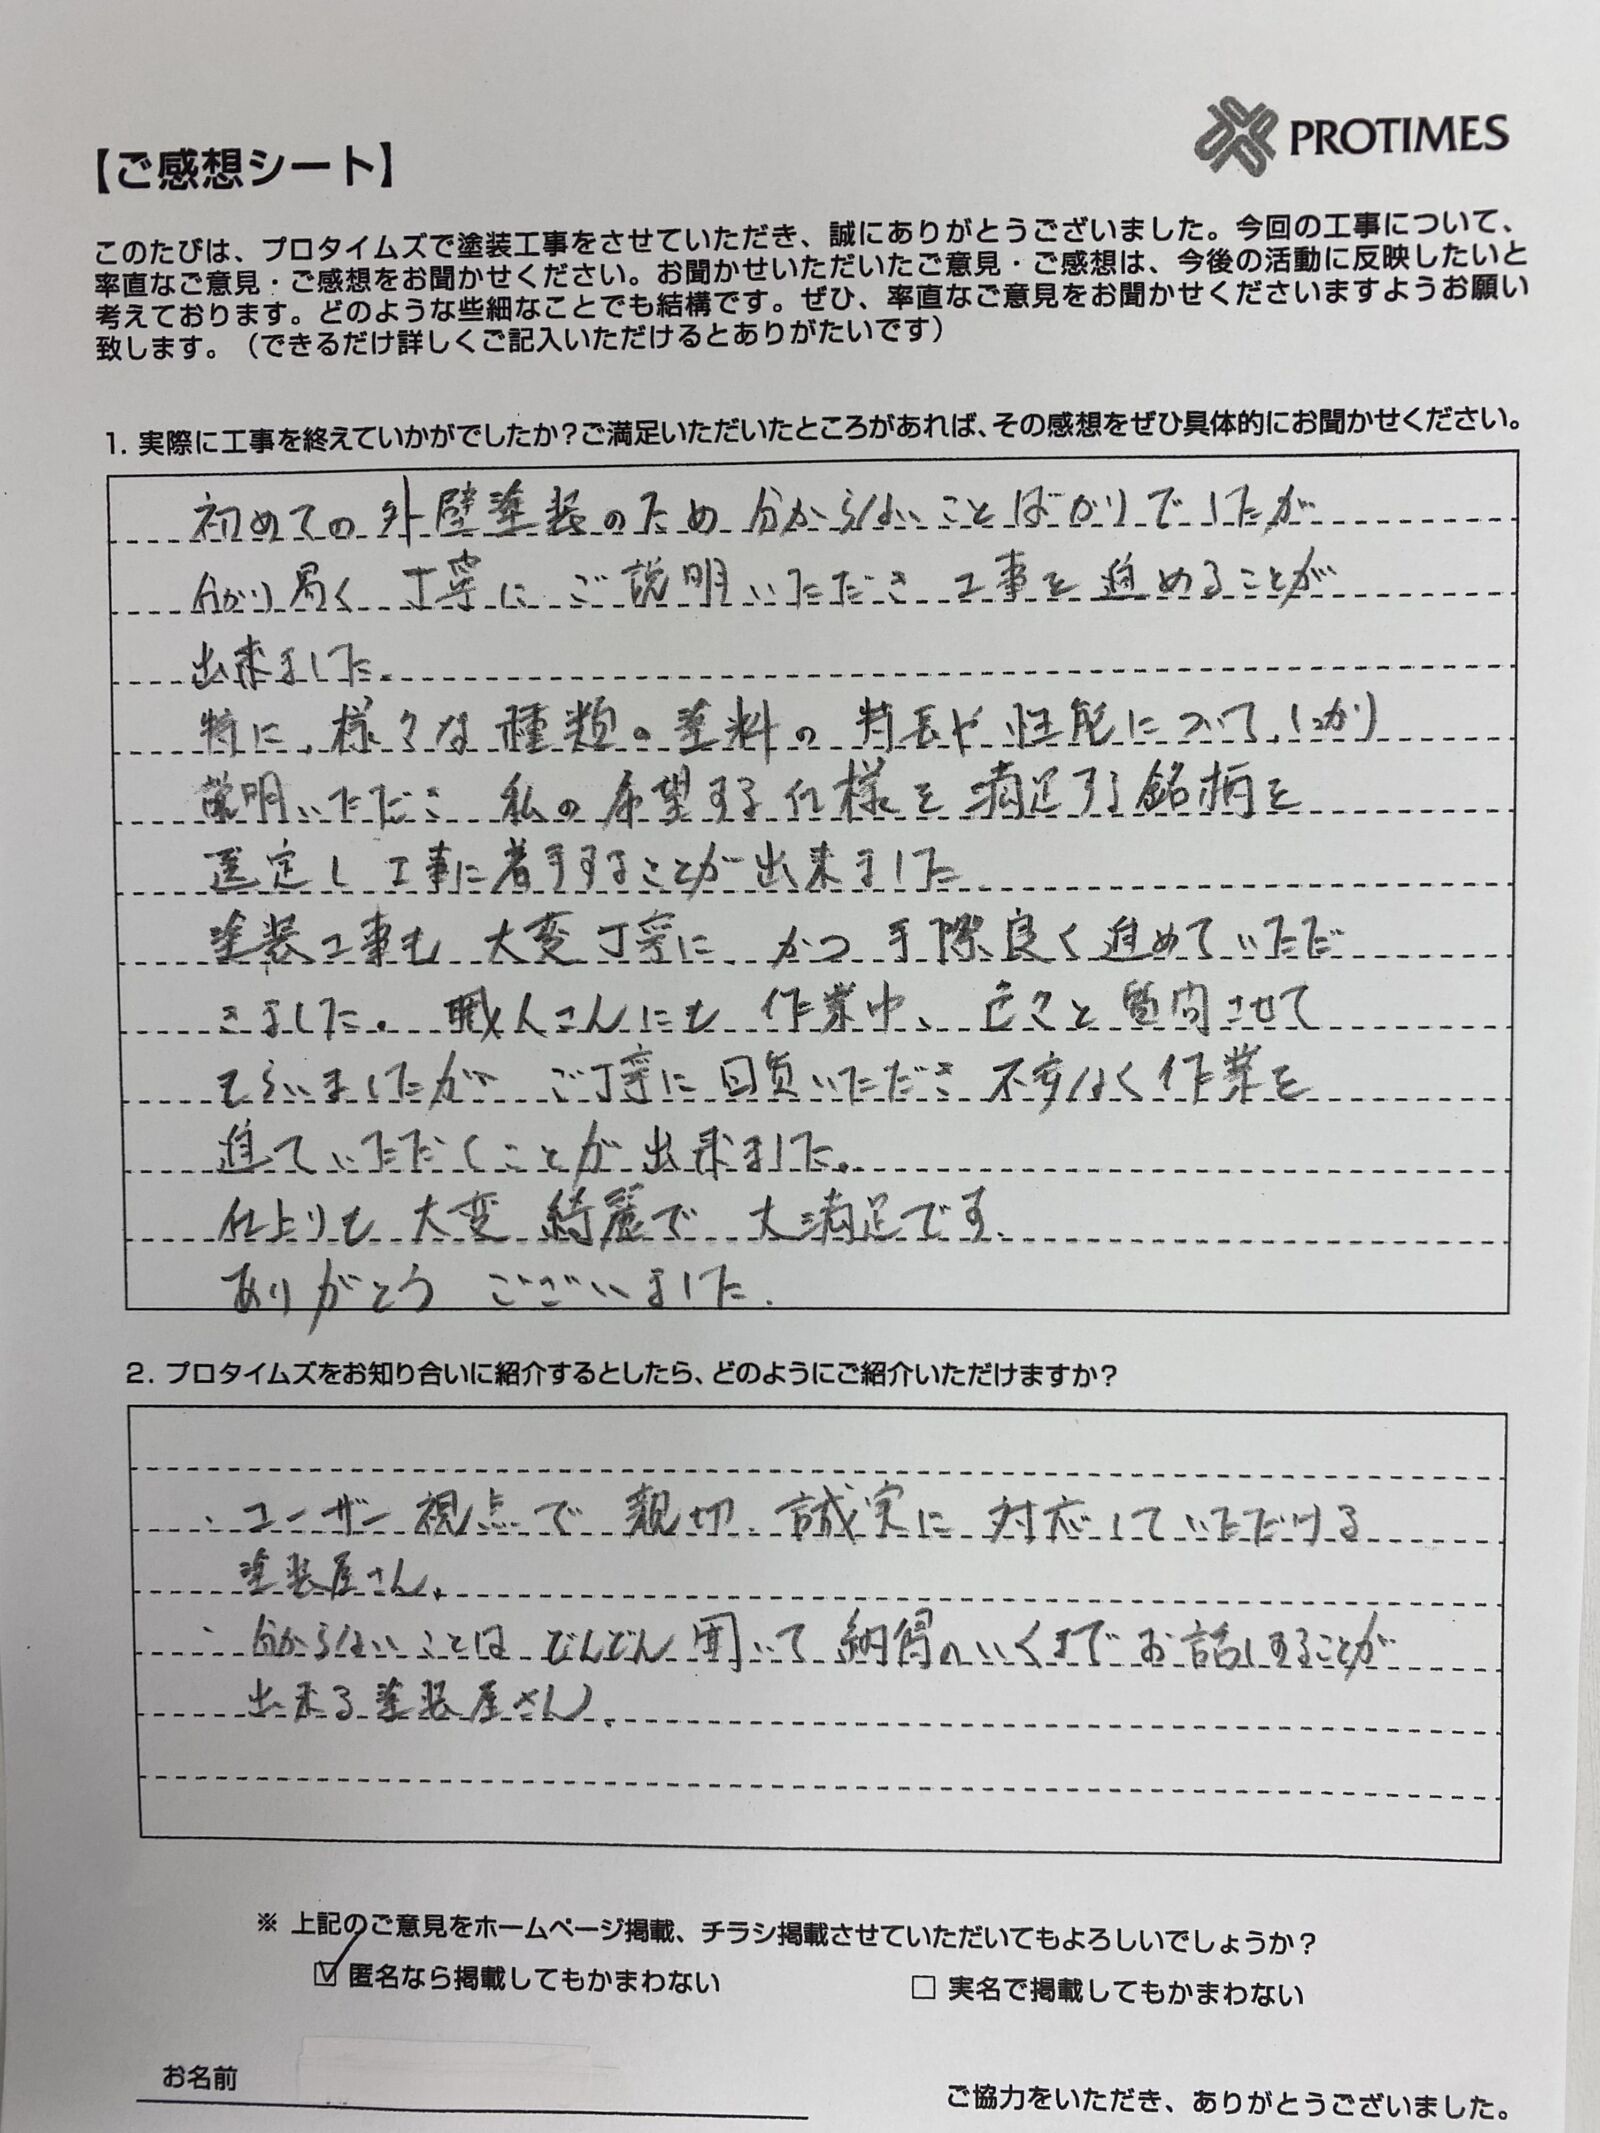 PROTIMES
【ご感想シート】
このたびは、プロタイムズで塗装工事をさせていただき、誠にありがとうございました。今回の工事について、
率直なご意見・ご感想をお聞かせください。お聞かせいただいたご意見・ご感想は、今後の活動に反映したいと
考えております。どのような些細なことでも結構です。ぜひ、率直なご意見をお聞かせくださいますようお願い
致します。(できるだけ詳しくご記入いただけるとありがたいです)
1. 実際に工事を終えていかがでしたか?ご満足いただいたところがあれば、その感想をぜひ具体的にお聞かせください。
初めての外壁塗装のため 分からないことばかりでしたが
分かり易く 丁寧に ご説明いただき 工事を進めることが
出来ました。
特に、様々な種類の塗料の 特長や性能について、しっかり
説明いただき 私の希望する仕様を満足する銘柄を
選定し 工事に着手することが出来ました
塗装工事も 大変丁寧に、かつ 手際良く進めていただ
きました。 職人さんにも 作業中、色々と質問させて
もらいましたが ご丁寧に回答いただき 不安なく作業を
進ていただくことが出来ました。
仕上りも 大変 綺麗で 大満足です。
ありがとう ございました。
2. プロタイムズをお知り合いに紹介するとしたら、どのようにご紹介いただけますか?
・ユーザー視点で 親切、誠実に 対応していただける
塗装屋さん。
・分からないことは どんどん 聞いて 納得のいくまで お話しすることが
出来る塗装屋さん。
※ 上記のご意見をホームページ掲載、チラシ掲載させていただいてもよろしいでしょうか?
☑ 匿名なら掲載してもかまわない □ 実名で掲載してもかまわない
お名前
ご協力をいただき、ありがとうございました。